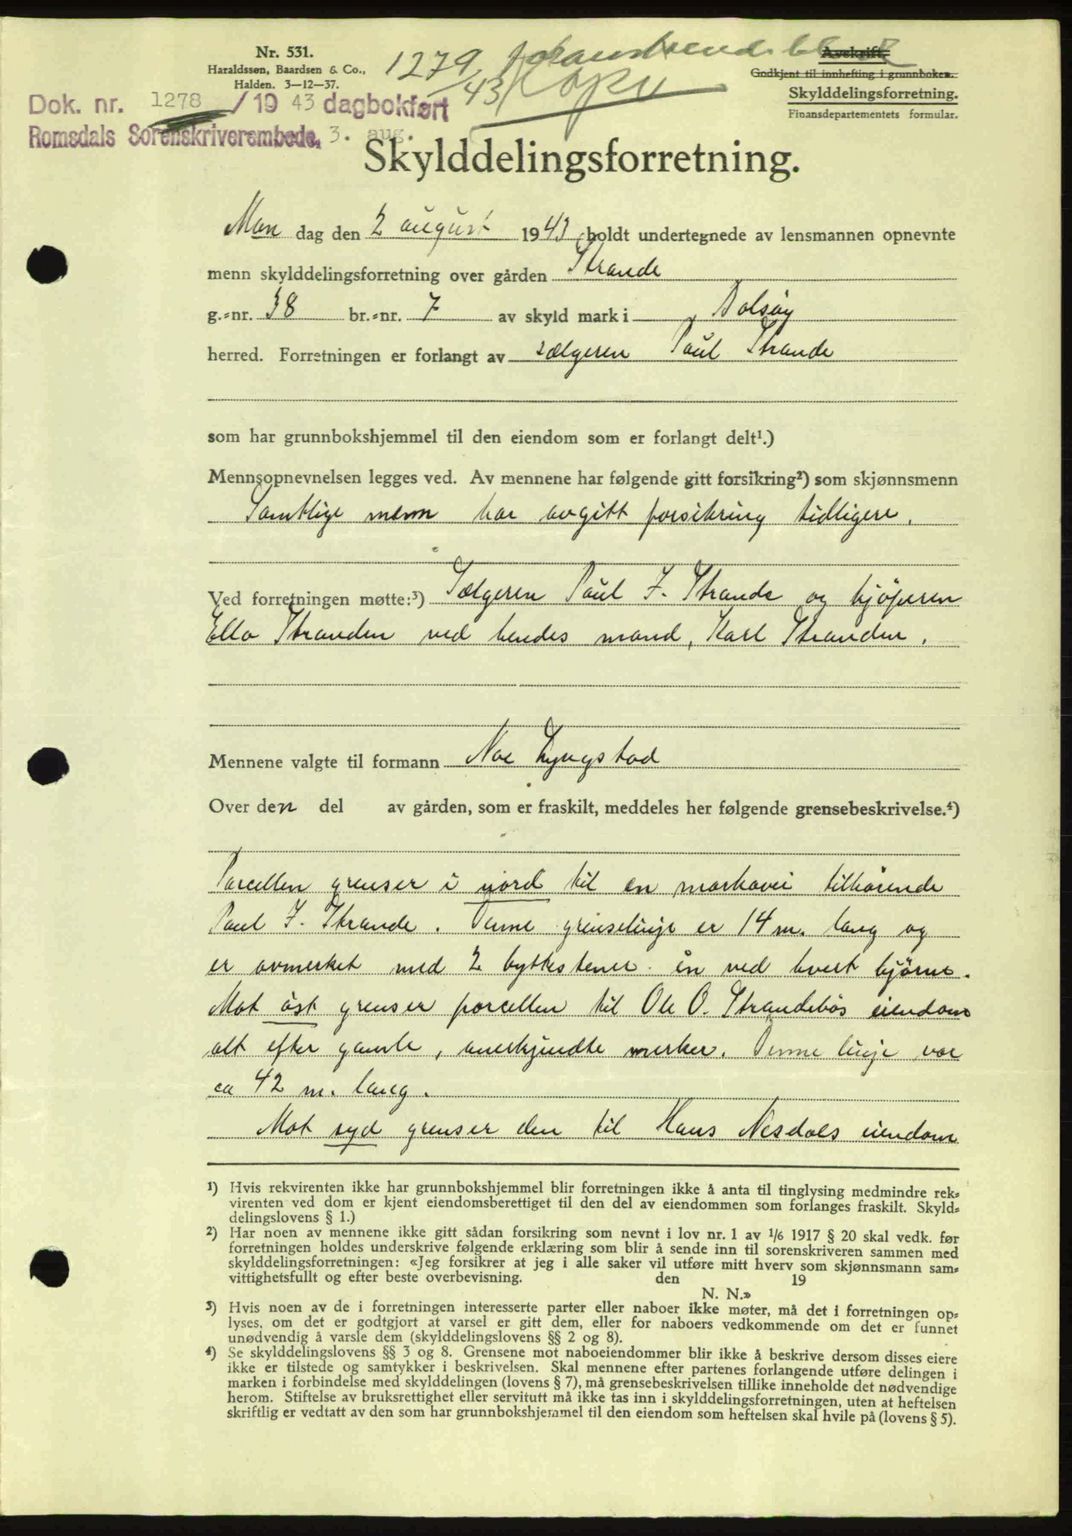 Nr. 531.
Haraldssøn, Baardsen & Co.,
Halden. 3—12—37.
1279
/43
Kopi
Avskrift.
Godkjent til innhefting i grunnboken.
Skylddelingsforretning.
Finansdepartementets formular.
Dok. nr. 1278 / 19 43 dagbokført
Romsdals Sorenskriverembede, 3. aug.
Skylddelingsforretning.
Man dag den 2 august 1943, holdt undertegnede av lensmannen opnevnte
menn skylddelingsforretning over gården Strande
g.-nr. 38 br.-nr. 7 av skyld mark i Bolsøy
herred. Forretningen er forlangt av sælgeren Paul Strande
som har grunnbokshjemmel til den eiendom som er forlangt delt¹.)
Mennsopnevnelsen legges ved. Av mennene har følgende gitt forsikring²) som skjønnsmenn
Samtlige menn har avgitt forsikring tidligere.
Ved forretningen møtte:³) Sælgeren Paul J. Strande og kjøperen
Ella Stranden ved hendes mand, Karl Stranden.
Mennene valgte til formann Noe Lyngstad
Over den del av gården, som er fraskilt, meddeles her følgende grensebeskrivelse.⁴)
Parcellen grenser i nord til en markavei tilhørende
Paul J. Strande. Denne grenselinje er 14 m. lang og
er avmerket med 2 byttestener. én ved hvert hjørne.
Mot øst grenser parcellen til Ole O. Strandebøs eiendom
alt efter gamle, anerkjendte merker. Denne linje var
ca 42 m. lang.
Mot syd grenser den til Hans Nesdals eiendom
¹) Hvis rekvirenten ikke har grunnbokshjemmel blir forretningen ikke å anta til tinglysing medmindre rek-
virenten ved dom er kjent eiendomsberettiget til den del av eiendommen som forlanges fraskilt. Skyld-
delingslovens § 1.)
²) Har noen av mennene ikke gitt sådan forsikring som nevnt i lov nr. 1 av 1/6 1917 § 20 skal vedk. før
forretningen holdes underskrive følgende erklæring som blir å sende inn til sorenskriveren sammen med
skylddelingsforretningen: «Jeg forsikrer at jeg i alle saker vil utføre mitt hverv som skjønnsmann sam-
vittighetsfullt og efter beste overbevisning. den 19
N. N.»
³) Hvis noen av de i forretningen interesserte parter eller naboer ikke møter, må det i forretningen op-
lyses, om det er godtgjort at varsel er gitt dem, eller for naboers vedkommende om det er funnet
unødvendig å varsle dem (skylddelingslovens §§ 2 og 8).
⁴) Se skylddelingslovens §§ 3 og 8. Grensene mot naboeiendommer blir ikke å beskrive dersom disses eiere
ikke er tilstede og samtykker i beskrivelsen. Skal mennene efter partenes forlangende utføre delingen i
marken i forbindelse med skylddelingen (lovens § 7), må grensebeskrivelsen tillike inneholde det nødvendige
herom. Stiftelse av bruksrettighet eller servitutt må ikke tas inn i skylddelingsforretningen, uten at heftelsen
skriftlig er vedtatt av den som har grunnbokshjemmel til den eiendom som heftelsen skal hvile på (lovens § 5).